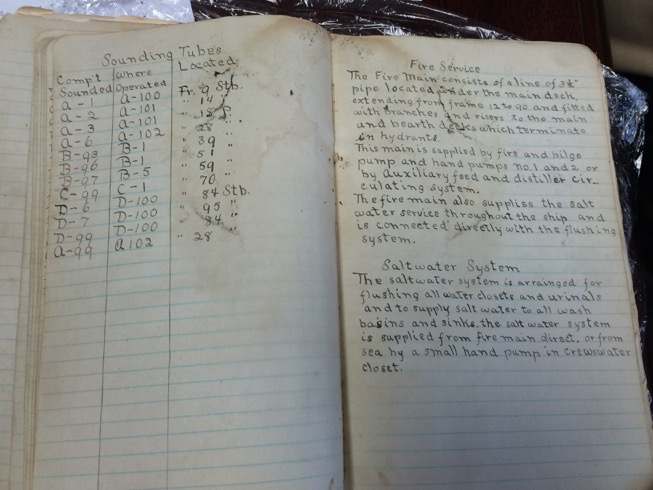 Sounding Tubes
Comp't Where Located
Sounded Operated
A-1 A-100 Fr. 9 Stb.
A-2 A-101 " 14 "
A-3 A-101 " 18 "
A-6 A-102 " 28 "
B-93 B-1 " 39 "
B-96 B-1 " 51 "
B-97 B-5 " 59 "
C-99 C-1 " 70 "
D-6 D-100 " 84 Stb.
D-7 D-100 " 95 "
D-99 D-100 " 84 "
A-99 A102 " 28
Fire Service
The Fire Main consists of a line of 3½"
pipe located under the main deck,
extending from frame 12 to 90 and fitted
with branches and risers to the main
and bearth decks which terminate
in hydrants.
This main is supplied by fire and bilge
pump and hand pumps no.1 and 2 or
by auxiliary feed and distiller cir-
culating system.
The fire main also supplies the salt
water service throughout the ship and
is connected directly with the flushing
system.
Saltwater System
The saltwater system is arrainged for
flushing all water closets and urinals
and to supply salt water to all wash
basins and sinks, the salt water system
is supplied from fire main direct, or from
sea by a small hand pump in crews water
closet.